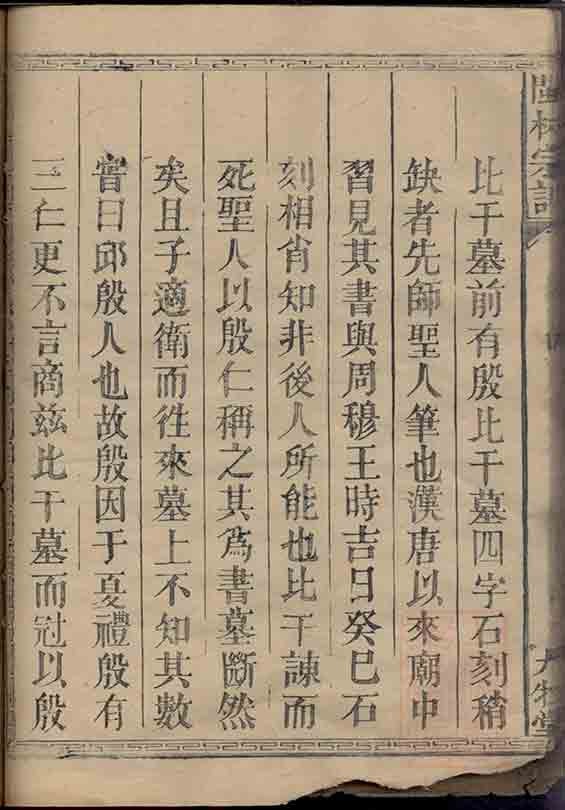 比干墓前有殷比干墓四字石刻稍
缺者先師聖人筆也漢唐以來廟中
習見其書與周穆王時吉日癸巳石
刻相肖知非後人所能也比干諫而
死聖人以殷仁稱之其為書墓斷然
矣且子適衛而徃來墓上不知其數
甞曰邱殷人也故殷因于夏禮殷有
三仁更不言商兹比干墓而冠以殷